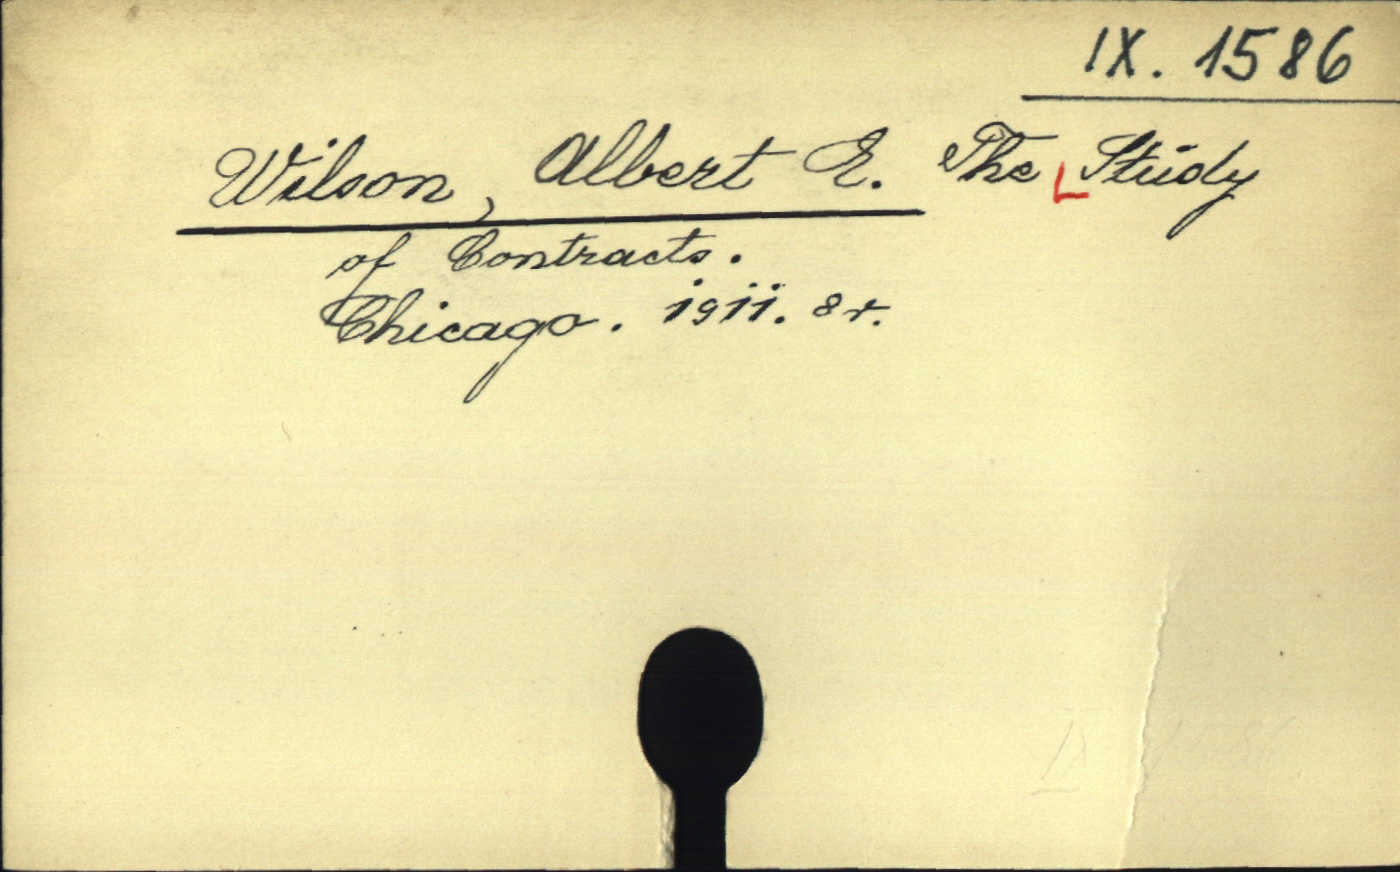 IX. 1586
Wilson, Albert E. The Study
of Contracts.
Chicago. 1911. 8 r.